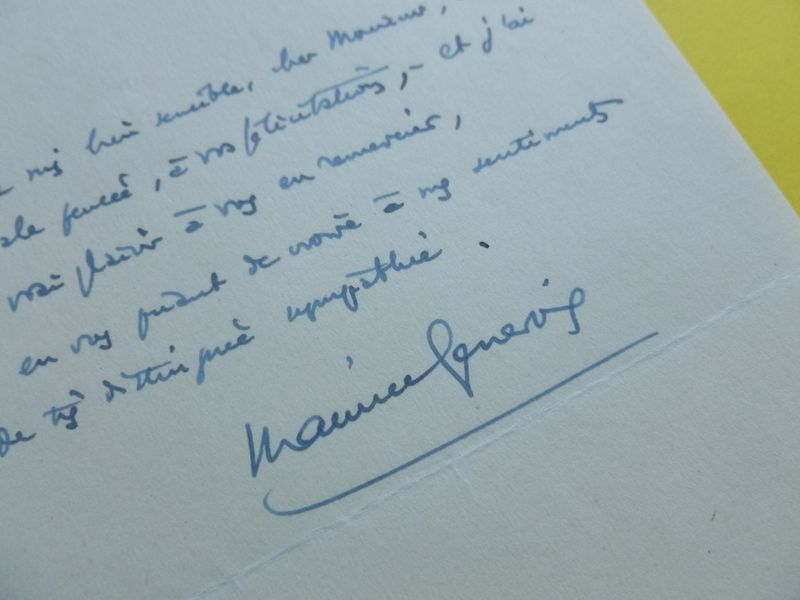 très bien sensible, cher Monsieur,
pensée, à vos félicitations, - et j'ai
vrai plaisir à vous en remercier,
en vous priant de croire à mes sentiments
de très distinguée sympathie.
Maurice Genevoix